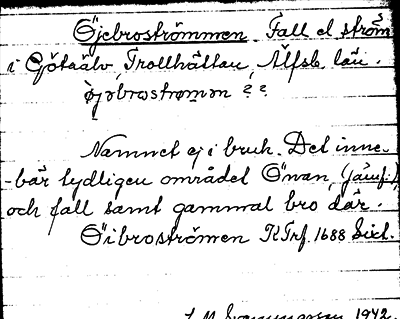 Öjebroströmmen. Fall el ström
i Götaälv, Trollhättan, Älfsb. län.
öjəbrostrømən ??
Namnet ej i bruk. Det inne-
-bär tydligen området Önan, (jämf.),
och fall samt gammal bro där.
Öibroströmen KTrf. 1688 Sixt.
1942.